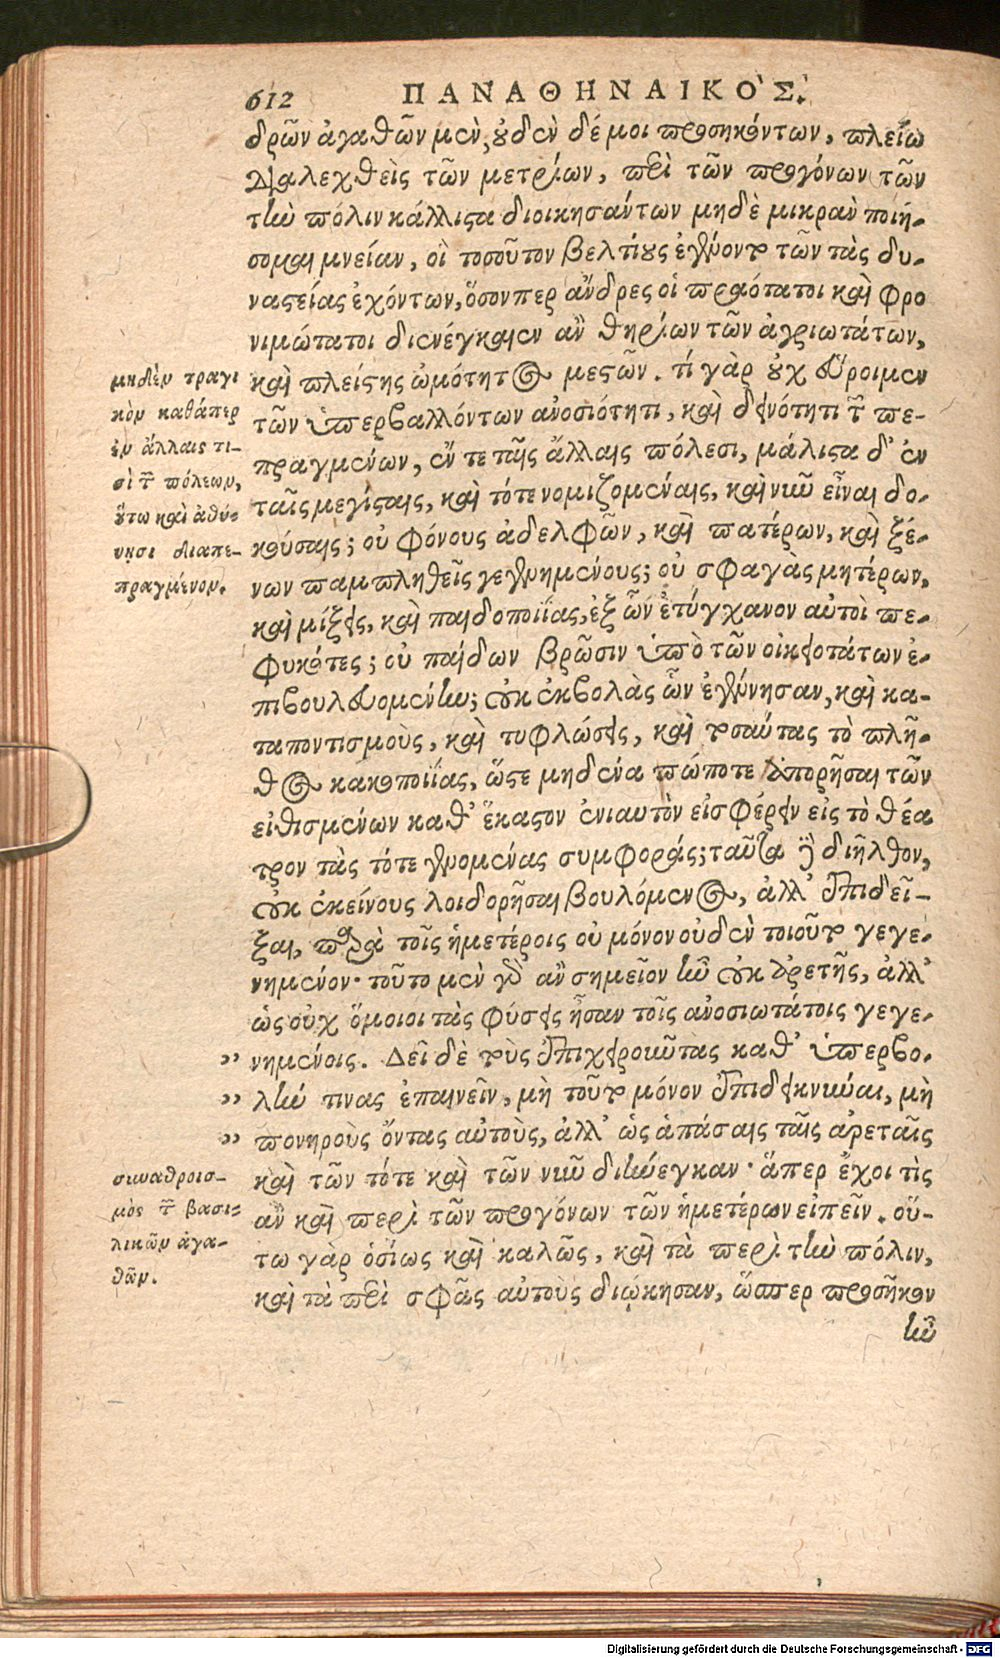 612 ΠΑΝΑΘΗΝΑΙΚΟ'Σ.
δρῶν ἀγαθῶν μὲν, οὐδὲν δέ μοι προσηκόντων, πλείω
διαλεχθεὶς τῶν μετρίων, περὶ τῶν προγόνων τῶν
τὴν πόλιν κάλλιστα διοικησάντων μηδὲ μικρὰν ποιή-
σομαι μνείαν, οἳ τοσοῦτον βελτίους ἐγένοντο τῶν τὰς δυ-
ναστείας ἐχόντων, ὅσονπερ ἄνδρες οἱ πραότατοι καὶ φρο
νιμώτατοι διενέγκαιεν ἂν θηρίων τῶν ἀγριωτάτων,
καὶ πλείστης ὠμότητος μεστῶν. τί γὰρ οὐχ εὕροιμεν
τῶν ὑπερβαλλόντων ἀνοσιότητι, καὶ δεινότητι τῶν πε-
πραγμένων, ἔν τε ταῖς ἄλλαις πόλεσι, μάλιστα δ' ἐν
ταῖς μεγίσταις, καὶ τότε νομιζομέναις, καὶ νῦν εἶναι δο-
κούσαις; οὐ φόνους ἀδελφῶν, καὶ πατέρων, καὶ ξέ-
νων παμπληθεῖς γεγενημένους; οὐ σφαγὰς μητέρων,
καὶ μίξεις, καὶ παιδοποιΐας, ἐξ ὧν ἐτύγχανον αὐτοὶ πε-
φυκότες; οὐ παίδων βρῶσιν ὑπὸ τῶν οἰκειοτάτων ἐ-
πιβουλευομένην; οὐκ ἐκβολὰς ὧν ἐγέννησαν, καὶ κα-
ταποντισμοὺς, καὶ τυφλώσεις, καὶ τοσαύτας τὸ πλῆ-
θος κακοποιΐας, ὥστε μηδένα πώποτε ἀπορῆσαι τῶν
εἰθισμένων καθ' ἕκαστον ἐνιαυτὸν εἰσφέρειν εἰς τὸ θέα
τρον τὰς τότε γενομένας συμφοράς; ταῦτα δὲ διῆλθον,
οὐκ ἐκείνους λοιδορῆσαι βουλόμενος, ἀλλ' ἐπιδεῖ-
ξαι, παρὰ τοῖς ἡμετέροις οὐ μόνον οὐδὲν τοιοῦτο γεγε-
νημένον· τοῦτο μὲν γὰρ ἂν σημεῖον ἦν οὐκ ἀρετῆς, ἀλλ'
ὡς οὐχ ὅμοιοι τὰς φύσεις ἦσαν τοῖς ἀνοσιωτάτοις γεγε-
" νημένοις. Δεῖ δὲ τοὺς ἐπιχειροῦντας καθ' ὑπερβο-
" λήν τινας ἐπαινεῖν, μὴ τοῦτο μόνον ἐπιδεικνύναι, μὴ
" πονηροὺς ὄντας αὐτοὺς, ἀλλ' ὡς ἁπάσαις ταῖς ἀρεταῖς
καὶ τῶν τότε καὶ τῶν νῦν διήνεγκαν· ἅπερ ἔχοι τὶς
ἂν καὶ περὶ τῶν προγόνων τῶν ἡμετέρων εἰπεῖν. οὕ-
τω γὰρ ὁσίως καὶ καλῶς, καὶ τὰ περὶ τὴν πόλιν,
καὶ τὰ περὶ σφᾶς αὐτοὺς διῴκησαν, ὥσπερ προσῆκον
ἦν
μηδὲν τραγι
κὸν καθάπερ
ἐν ἄλλαις τι-
σὶ τῶν πόλεων,
οὕτω καὶ ἀθή-
νησι διαπε-
πραγμένον.
συναθροισ-
μὸς τῶν βασι-
λικῶν ἀγα-
θῶν.
Digitalisierung gefördert durch die Deutsche Forschungsgemeinschaft - DFG